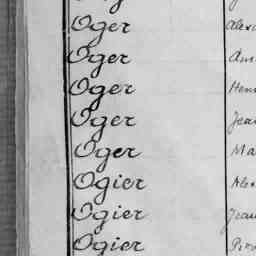 Oger
Oger
Oger Hen
Oger Jea
Oger Ma
Ogier Alex
Ogier Jean
Ogier